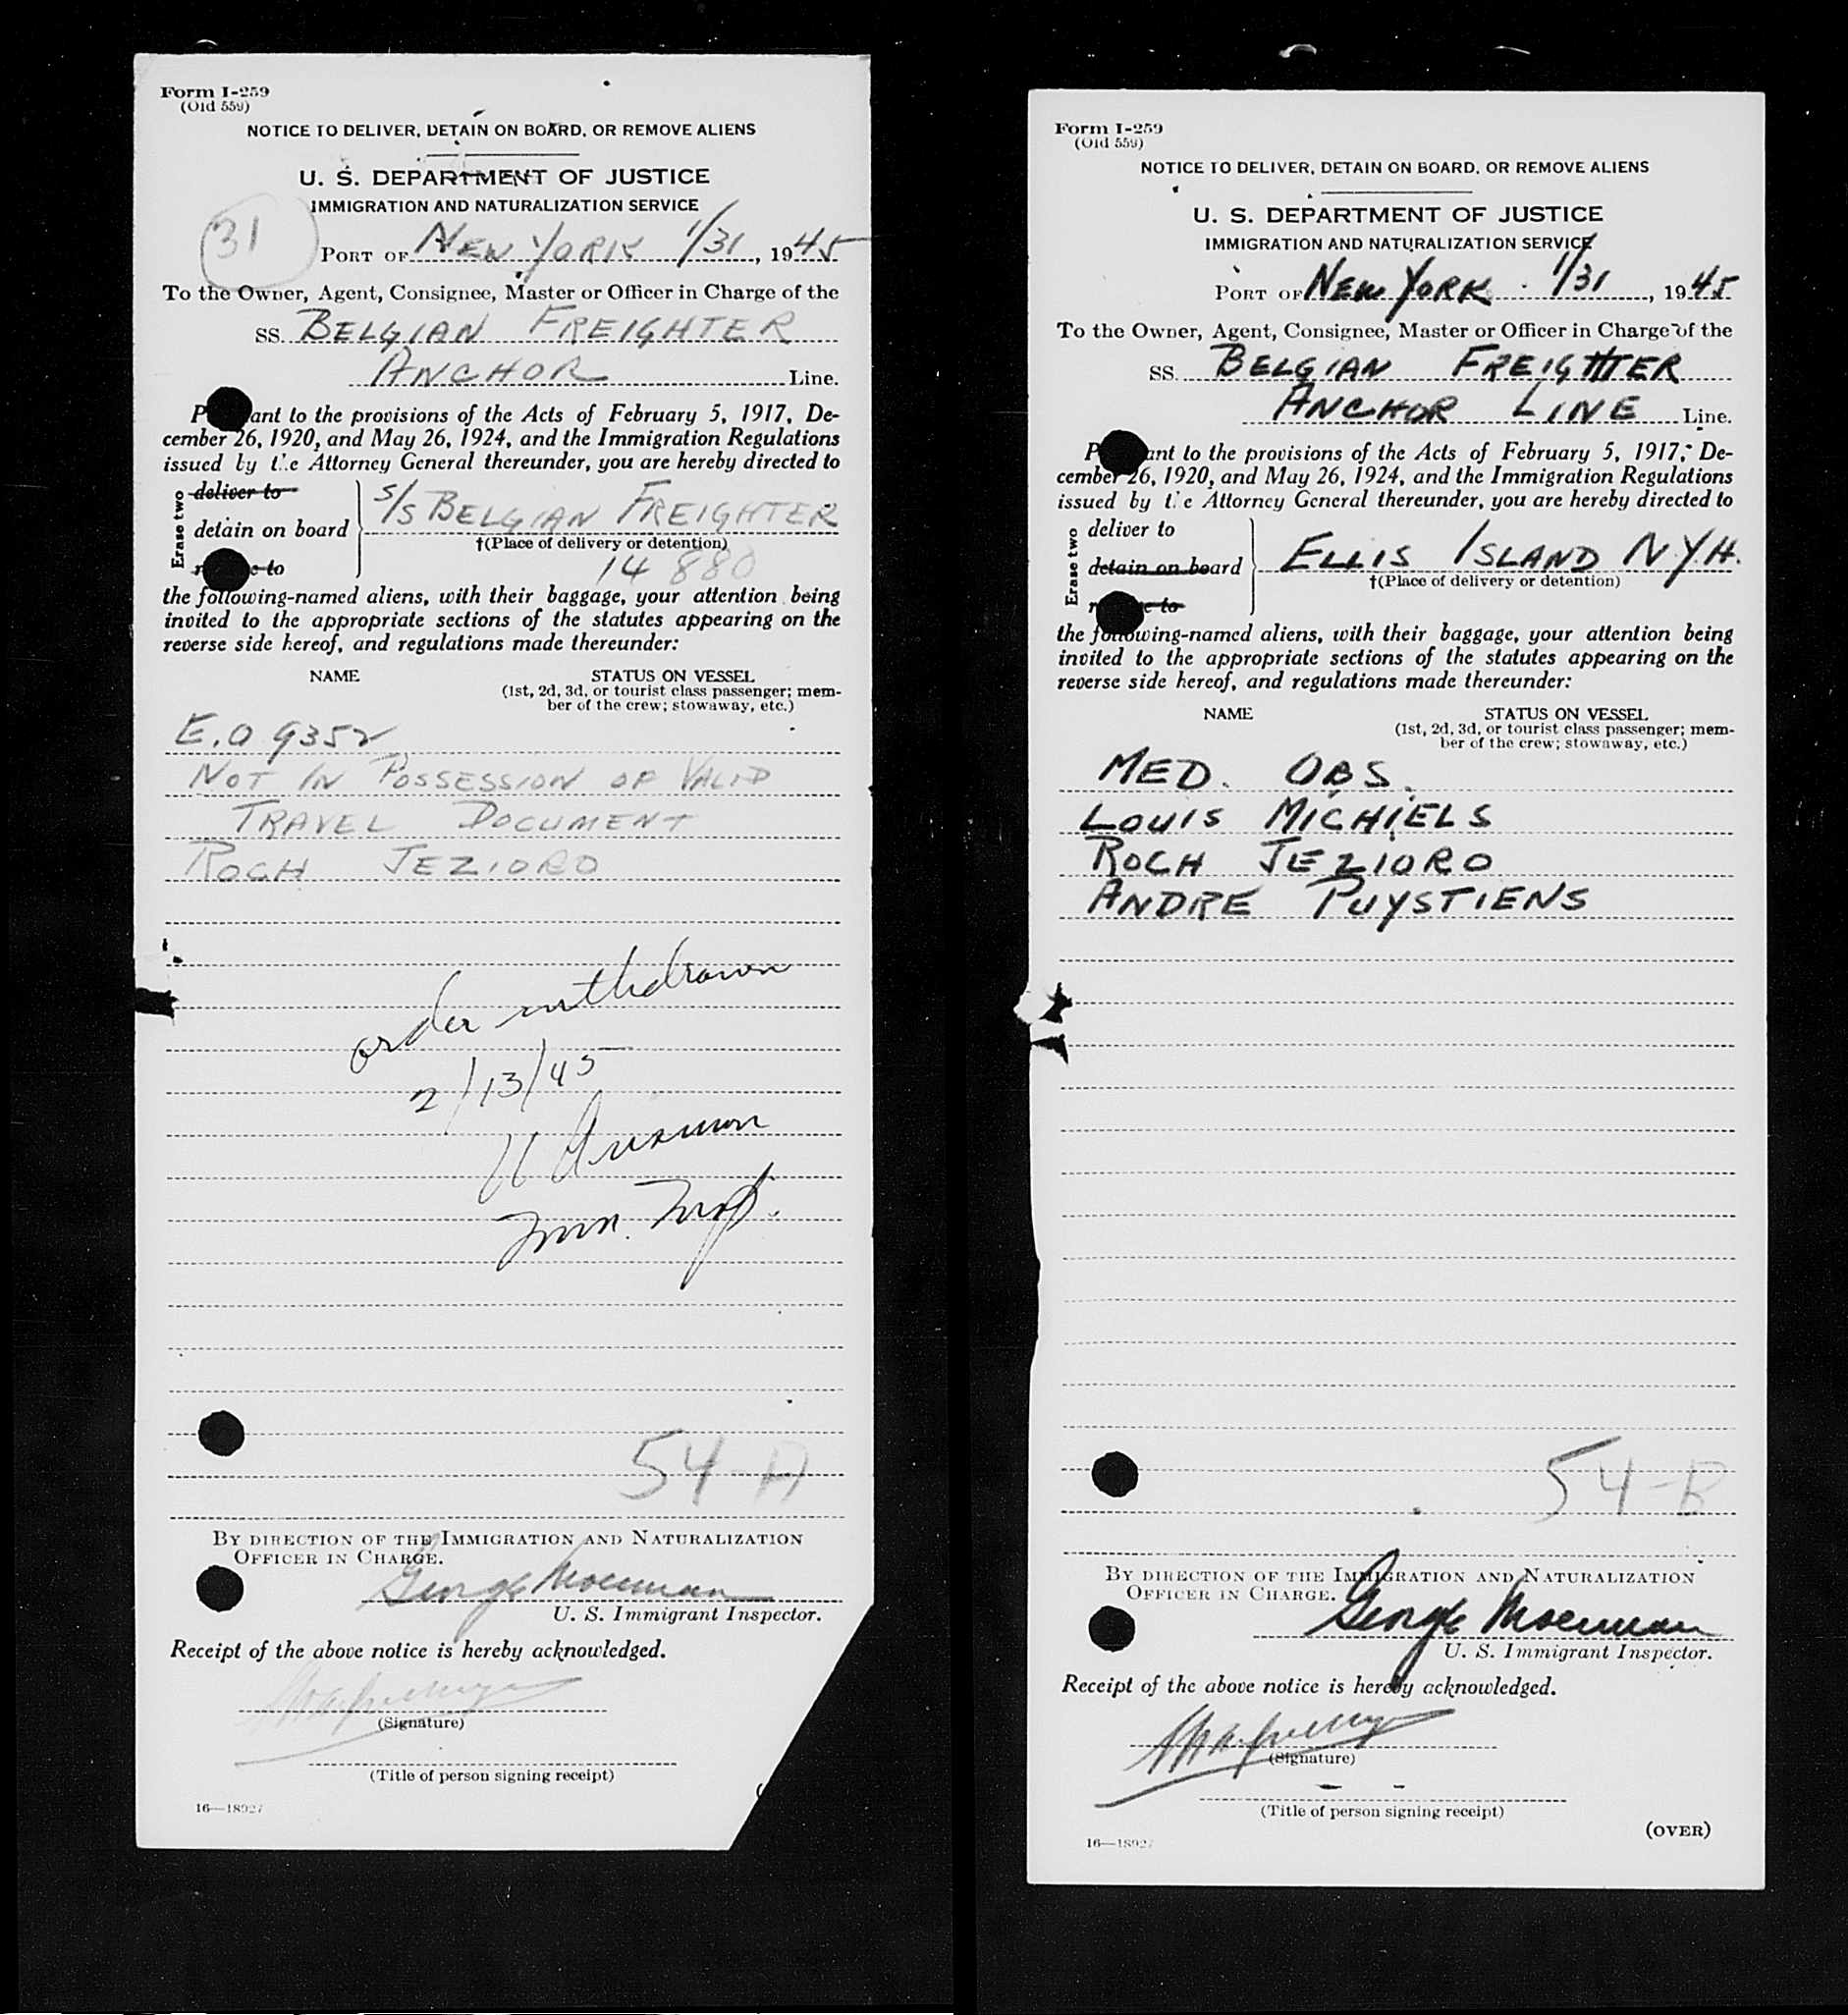 Form I-259
(Old 559)
NOTICE TO DELIVER, DETAIN ON BOARD, OR REMOVE ALIENS
U. S. DEPARTMENT OF JUSTICE
IMMIGRATION AND NATURALIZATION SERVICE
31
PORT OF NEW YORK 1/31, 1945
To the Owner, Agent, Consignee, Master or Officer in Charge of the
SS. BELGIAN FREIGHTER
ANCHOR Line.
P ant to the provisions of the Acts of February 5, 1917, De-
cember 26, 1920, and May 26, 1924, and the Immigration Regulations
issued by the Attorney General thereunder, you are hereby directed to
Erase two
deliver to
detain on board
r e to
S/S BELGIAN FREIGHTER
†(Place of delivery or detention)
14 880
the following-named aliens, with their baggage, your attention being
invited to the appropriate sections of the statutes appearing on the
reverse side hereof, and regulations made thereunder:
NAME STATUS ON VESSEL
(1st, 2d, 3d, or tourist class passenger; mem-
ber of the crew; stowaway, etc.)
E.O 9352
NOT IN POSSESSION OF VALID
TRAVEL DOCUMENT
ROCH JEZIORO
order withdrawn
2/13/45
Imm. Insp.
54-A
BY DIRECTION OF THE IMMIGRATION AND NATURALIZATION
OFFICER IN CHARGE.
George Moerman
U. S. Immigrant Inspector.
Receipt of the above notice is hereby acknowledged.
(Signature)
(Title of person signing receipt)
16—18927
Form I-259
(Old 559)
NOTICE TO DELIVER, DETAIN ON BOARD, OR REMOVE ALIENS
U. S. DEPARTMENT OF JUSTICE
IMMIGRATION AND NATURALIZATION SERVICE
PORT OF NEW YORK 1/31, 1945
To the Owner, Agent, Consignee, Master or Officer in Charge of the
SS. BELGIAN FREIGHTER
ANCHOR LINE Line.
P ant to the provisions of the Acts of February 5, 1917, De-
cember 26, 1920, and May 26, 1924, and the Immigration Regulations
issued by the Attorney General thereunder, you are hereby directed to
Erase two
deliver to
detain on board
r e to
ELLIS ISLAND N.Y.H.
†(Place of delivery or detention)
the following-named aliens, with their baggage, your attention being
invited to the appropriate sections of the statutes appearing on the
reverse side hereof, and regulations made thereunder:
NAME STATUS ON VESSEL
(1st, 2d, 3d, or tourist class passenger; mem-
ber of the crew; stowaway, etc.)
MED. OBS.
LOUIS MICHIELS
ROCH JEZIORO
ANDRE PUYSTIENS
54-B
BY DIRECTION OF THE IMMIGRATION AND NATURALIZATION
OFFICER IN CHARGE.
George Moerman
U. S. Immigrant Inspector.
Receipt of the above notice is hereby acknowledged.
(Signature)
(Title of person signing receipt)
16—18927
(OVER)